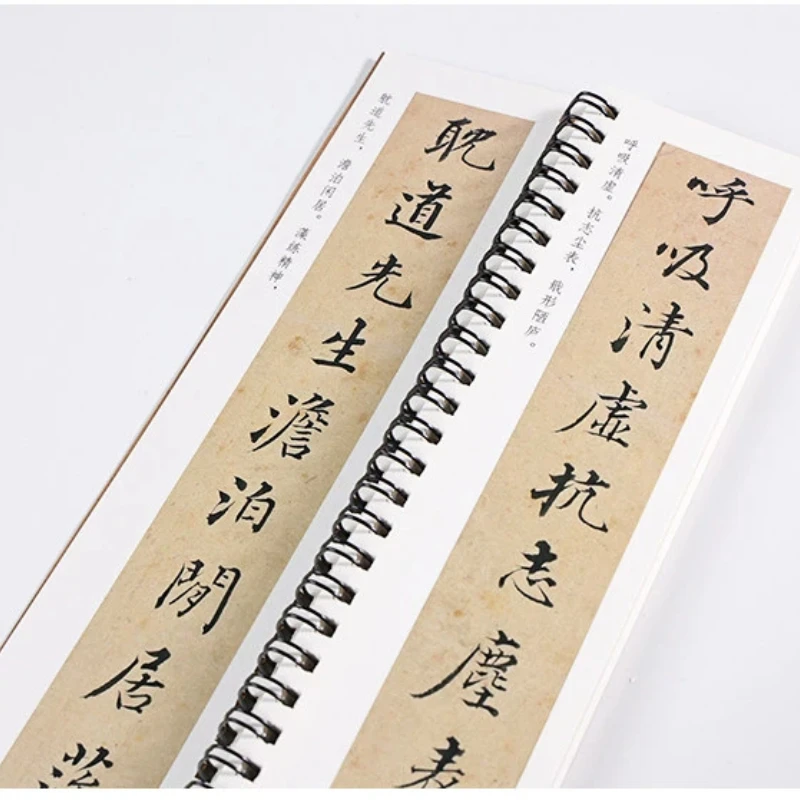 耽道先生，澹泊闲居。藻练精神，
耽道先生澹泊閒居藻
呼吸清虚。抗志尘表，戢形陋庐。
呼吸清虚抗志塵表